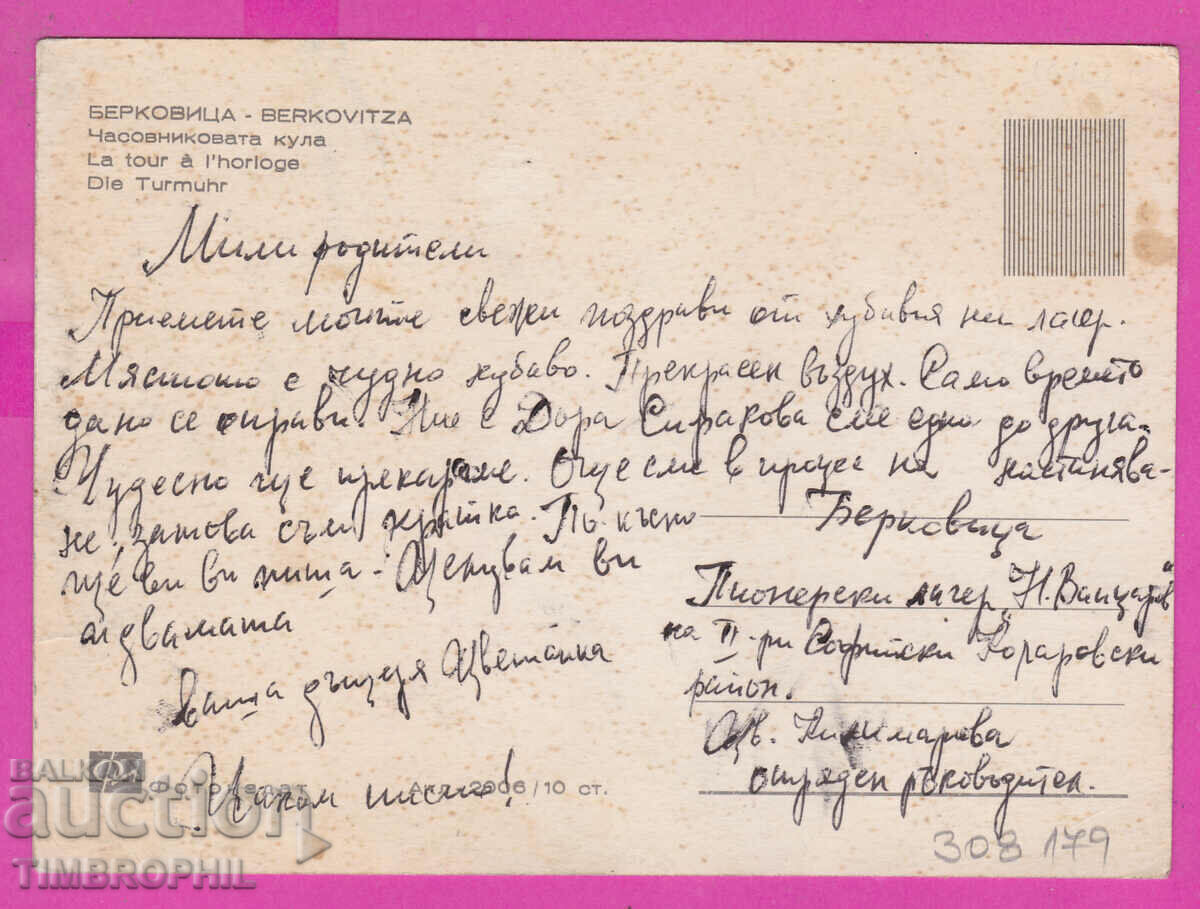 БЕРКОВИЦА - BERKOVITZA
Часовниковата кула
La tour à l'horloge
Die Turmuhr
Мили родители
Приемете моите свежи поздрави от хубавия ни лагер.
Мястото е чудно хубаво. Прекрасен въздух. Само времето
дано се оправи. Ние с Дора Сиракова сме една до друга.
Чудесно ще прекараме. Още сме в процес на настанява-
не, затова съм кратка. По късно
ще ви пиша. Целувам ви
и двамата
Ваша дъщеря Цветанка
Чакам писмо!
Берковица
Пионерски лагер „Н. Вапцаров"
на II-ри Софийски Коларовски
район.
Цв.
отряден ръководител.
Фотоиздат
Ак. 2906/10 ст.
308179
BALKAN
auction
TIMBROPHIL